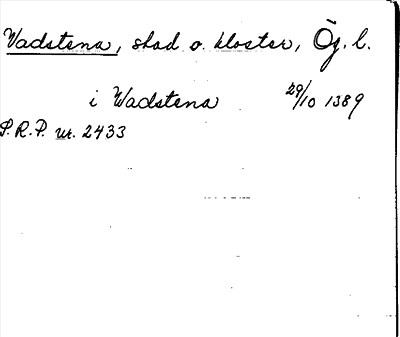 Vadstena, stad o. kloster, Ög. l.
i Wadstena 29/10 1389
S.R.P. nr. 2433